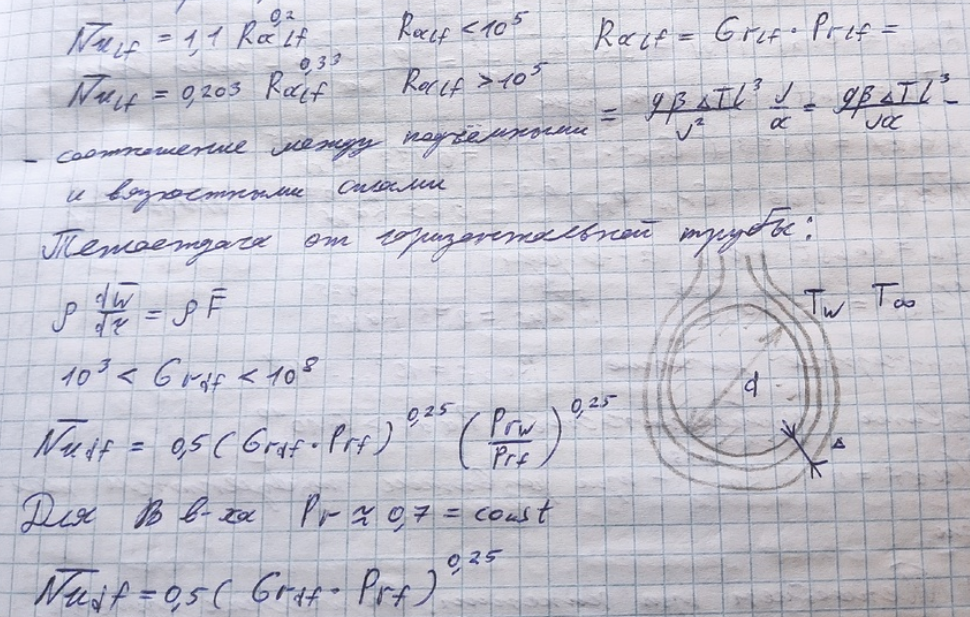 N̅u_Lf = 1,1 Ra_Lf^0,2    Ra_Lf < 10^5    Ra_Lf = Gr_Lf · Pr_Lf =
N̅u_Lf = 0,203 Ra_Lf^0,33    Ra_Lf > 10^5    = gβΔTL³/ν² · ν/α = gβΔTL³/να -
- соотношение между подъёмными
и вязкостными силами
Теплоотдача от горизонтальной трубы:
ρ dw̅/dτ = ρF̅
T_w T_∞
10^3 < Gr_df < 10^8
d
N̅u_df = 0,5 (Gr_df · Pr_f)^0,25 (Pr_w/Pr_f)^0,25
Δ
Для В в-ха Pr ≈ 0,7 = const
N̅u_df = 0,5 (Gr_df · Pr_f)^0,25